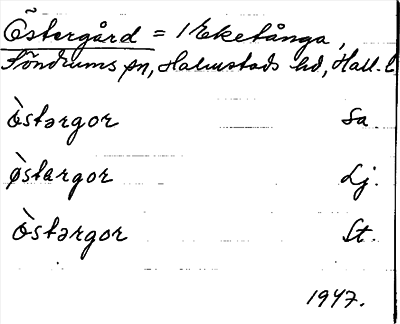 Östergård = 1 Eketånga,
Söndrums sn, Halmstads hd, Hall. l.
òstərgor Sa
òstərgor Lj.
òstərgor St.
1947.